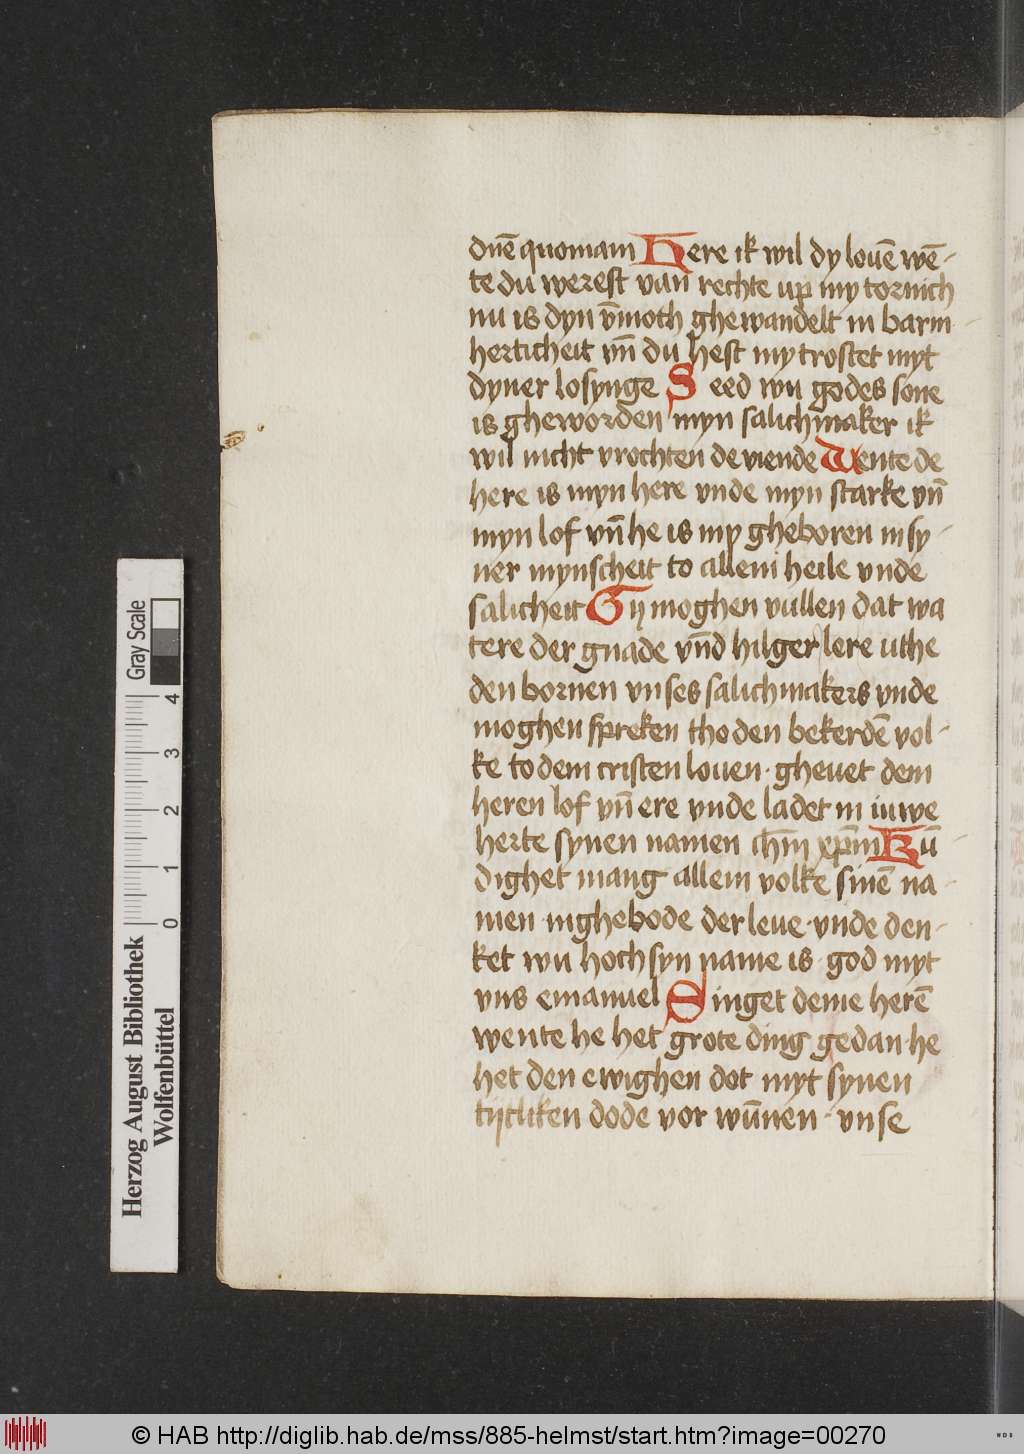 dn̄e quoniam Here ik wil dy louē wē-
te du werest van rechte up my tornich
nu is dyn v̄moth ghewandelt in barm-
herticheit vn̄ du hest my trostet myt
dyner losynge Seed wu godes sone
is gheworden myn salichmaker ik
wil nicht vrochten de viende Wente de
here is myn here vnde myn starke vn̄
myn lof vn̄ he is my gheboren in sy-
ner mynscheit to allem heile vnde
salicheit Gij moghen vullen dat wa
tere der gnade vn̄d hilger lere uthe
den bornen vnses salichmakers vnde
moghen spreken tho den bekerdē vol-
ke to dem cristen louen · gheuet dem
heren lof vn̄ ere vnde ladet in iuwe
herte synen namen ihm̄ xp̄m Kū-
dighet mang allem volke sinē na-
men in ghebode der leue · vnde den-
ket wu hoch syn name is · god myt
vns emanuel Singet deme herē
wente he het grote ding gedan · he
het den ewighen dot myt synen
tijtliken dode vorwūnen · vnse
Gray Scale
0 1 2 3 4
Herzog August Bibliothek
Wolfenbüttel
© HAB http://diglib.hab.de/mss/885-helmst/start.htm?image=00270